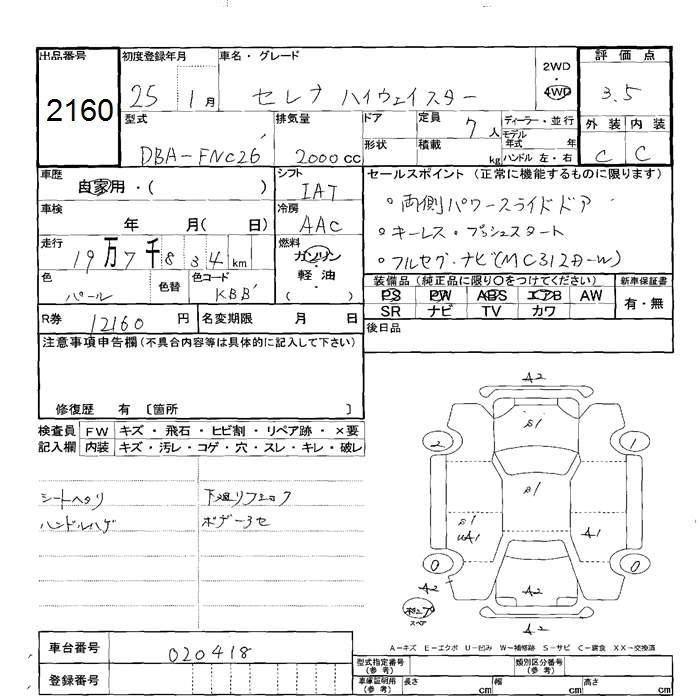 出品番号 初度登録年月 車名・グレード 2WD 評価点
2160 25 1月 セレナ ハイウェイスター 4WD 3.5
型式 排気量 ドア 定員 7人 ディーラー・並行 外装 内装
モデル年式 年
DBA-FNC26 2000cc 形状 積載 kg ハンドル 左・右 C C
車歴 シフト セールスポイント(正常に機能するものに限ります)
自家用・( ) IAT
車検 冷房 両側パワースライドドア
年 月( 日) AAC キーレス・プッシュスタート
走行 燃料 フルセグ・ナビ(MC312D-W)
19万7千834km ガソリン
軽・油
( )
色 色替 色コード 装備品(純正品に限り○をつけてください) 新車保証書
パール KBB PS PW ABS エアB AW 有・無
SR ナビ TV カワ
R券 12160円 名変期限 月 日 後日品
注意事項申告欄(不具合内容等は具体的に記入して下さい)
修復歴 有 〔箇所 〕
検査員 FW キズ・飛石・ヒビ割・リペア跡・×要
記入欄 内装 キズ・汚レ・コゲ・穴・スレ・キレ・破レ
シートヘタリ 下廻リフェック
ハンドルハゲ ボデーヨセ
A2
S1
2 1
S1
S1
UA1 A1
0 0
A2 A2
スペア A2
A-キズ E-エクボ U-凹み W-補修跡 S-サビ C-腐食 XX-交換済
車台番号 020418
登録番号
型式指定番号(参考) 類別区分番号(参考)
車庫証明用(参考) 長さ cm 幅 cm 高さ cm